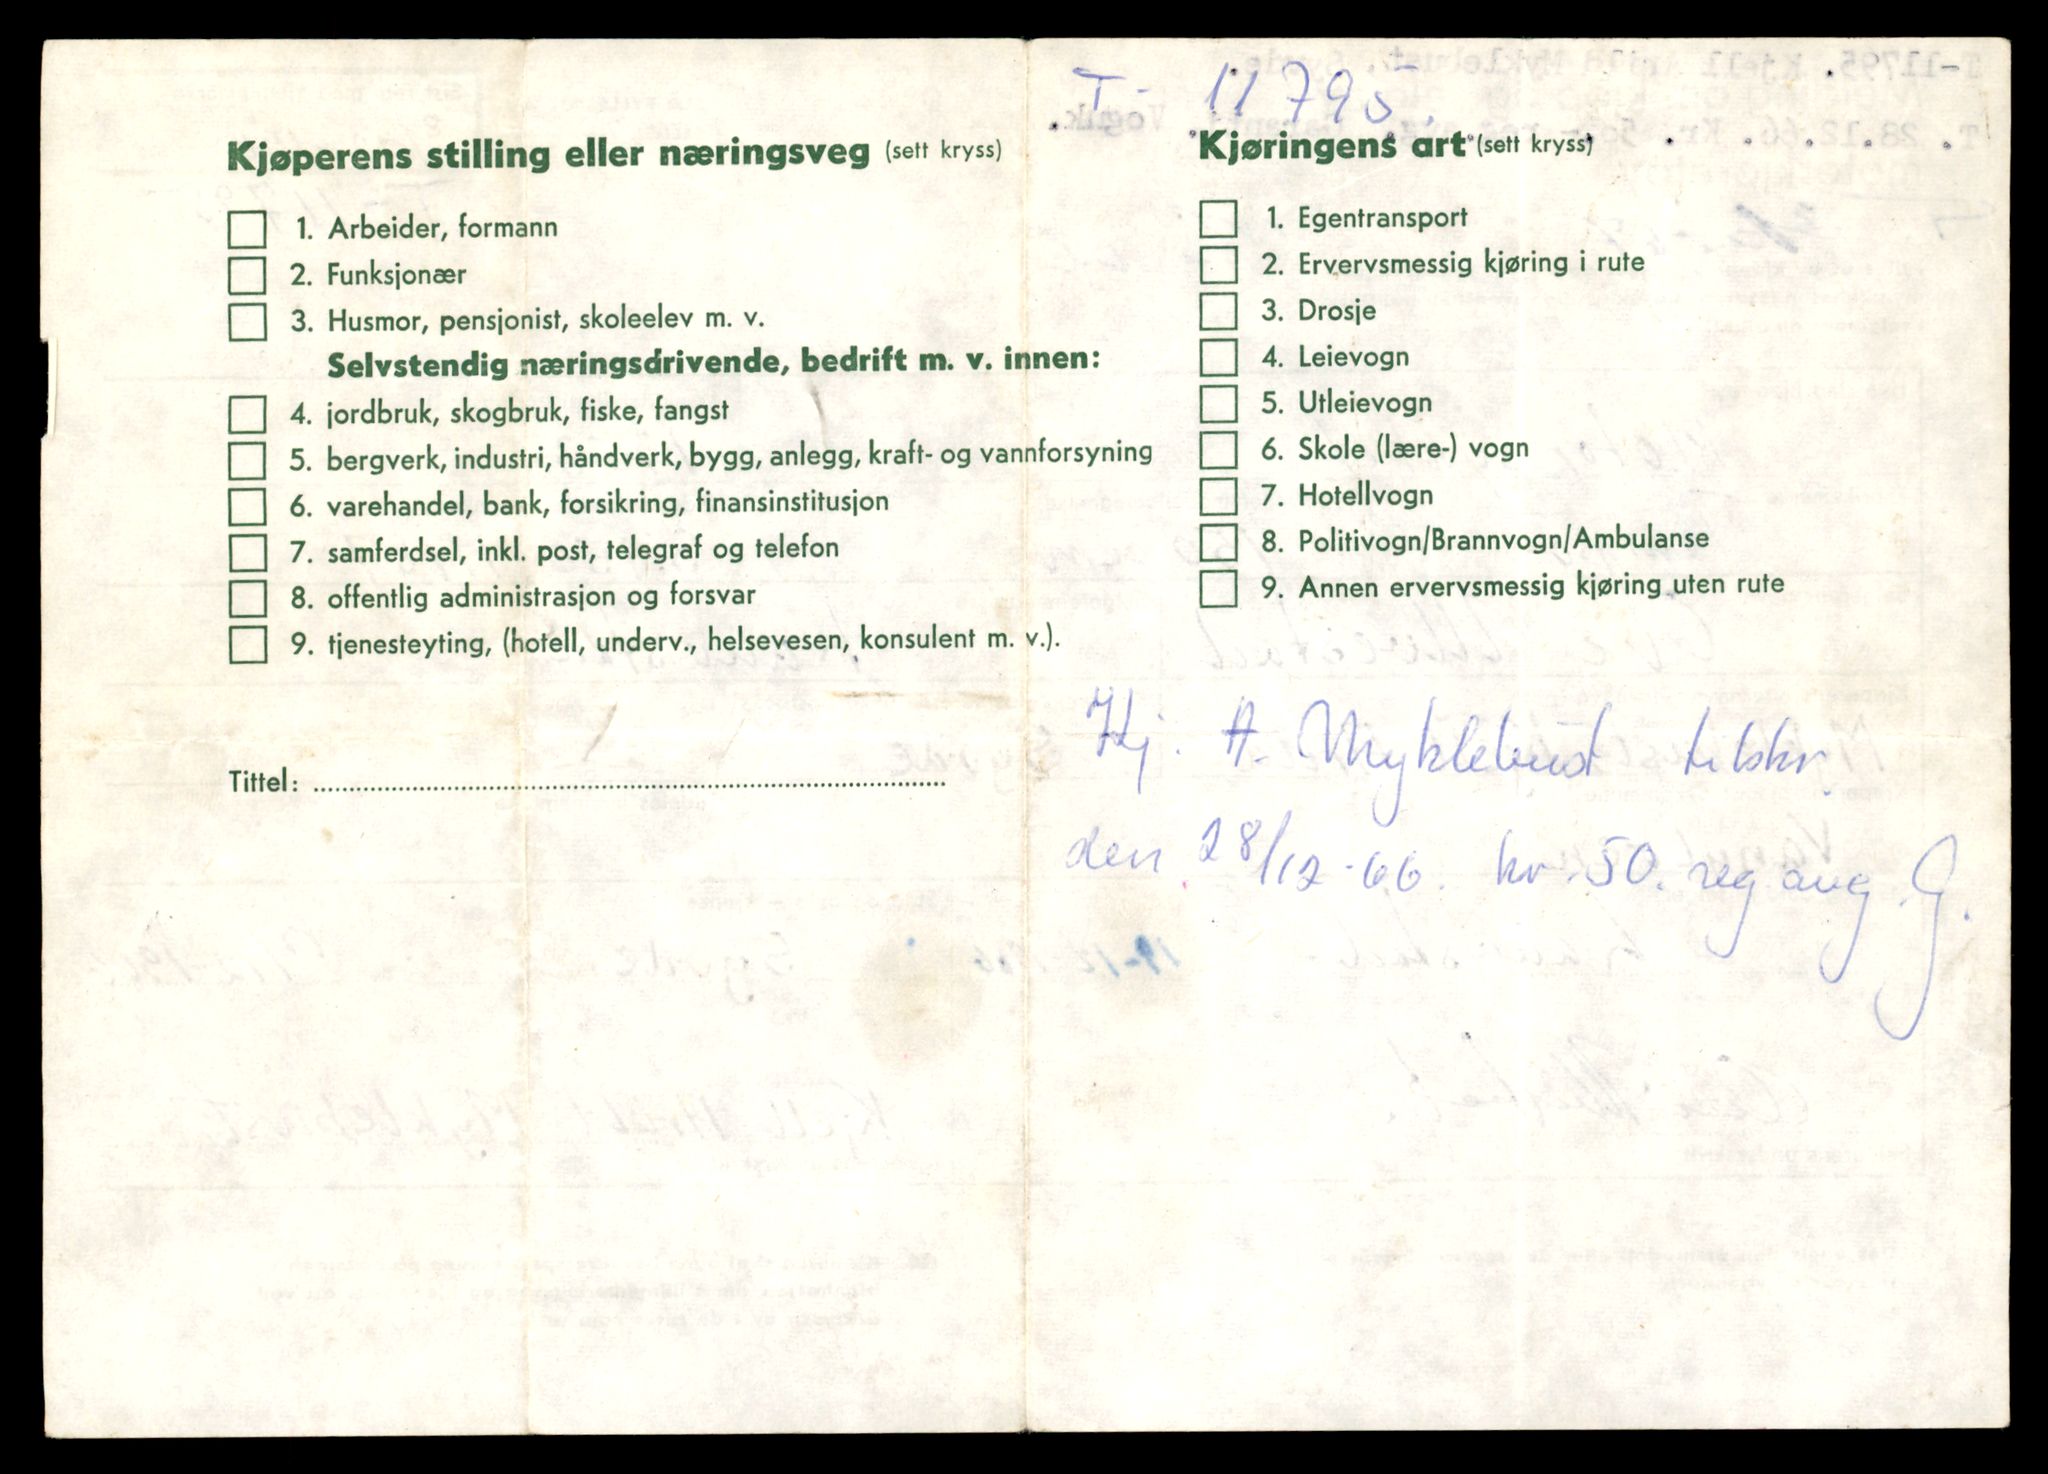 T - 11795.
Kjøperens stilling eller næringsveg (sett kryss)
1. Arbeider, formann
2. Funksjonær
3. Husmor, pensjonist, skoleelev m. v.
Selvstendig næringsdrivende, bedrift m. v. innen:
4. jordbruk, skogbruk, fiske, fangst
5. bergverk, industri, håndverk, bygg, anlegg, kraft- og vannforsyning
6. varehandel, bank, forsikring, finansinstitusjon
7. samferdsel, inkl. post, telegraf og telefon
8. offentlig administrasjon og forsvar
9. tjenesteyting, (hotell, underv., helsevesen, konsulent m. v.).
Tittel:
Kjøringens art (sett kryss)
1. Egentransport
2. Ervervsmessig kjøring i rute
3. Drosje
4. Leievogn
5. Utleievogn
6. Skole (lære-) vogn
7. Hotellvogn
8. Politivogn/Brannvogn/Ambulanse
9. Annen ervervsmessig kjøring uten rute
Kj. A. Myklebust tilskr.
den 28/12-66. kr. 50. reg avg. G.